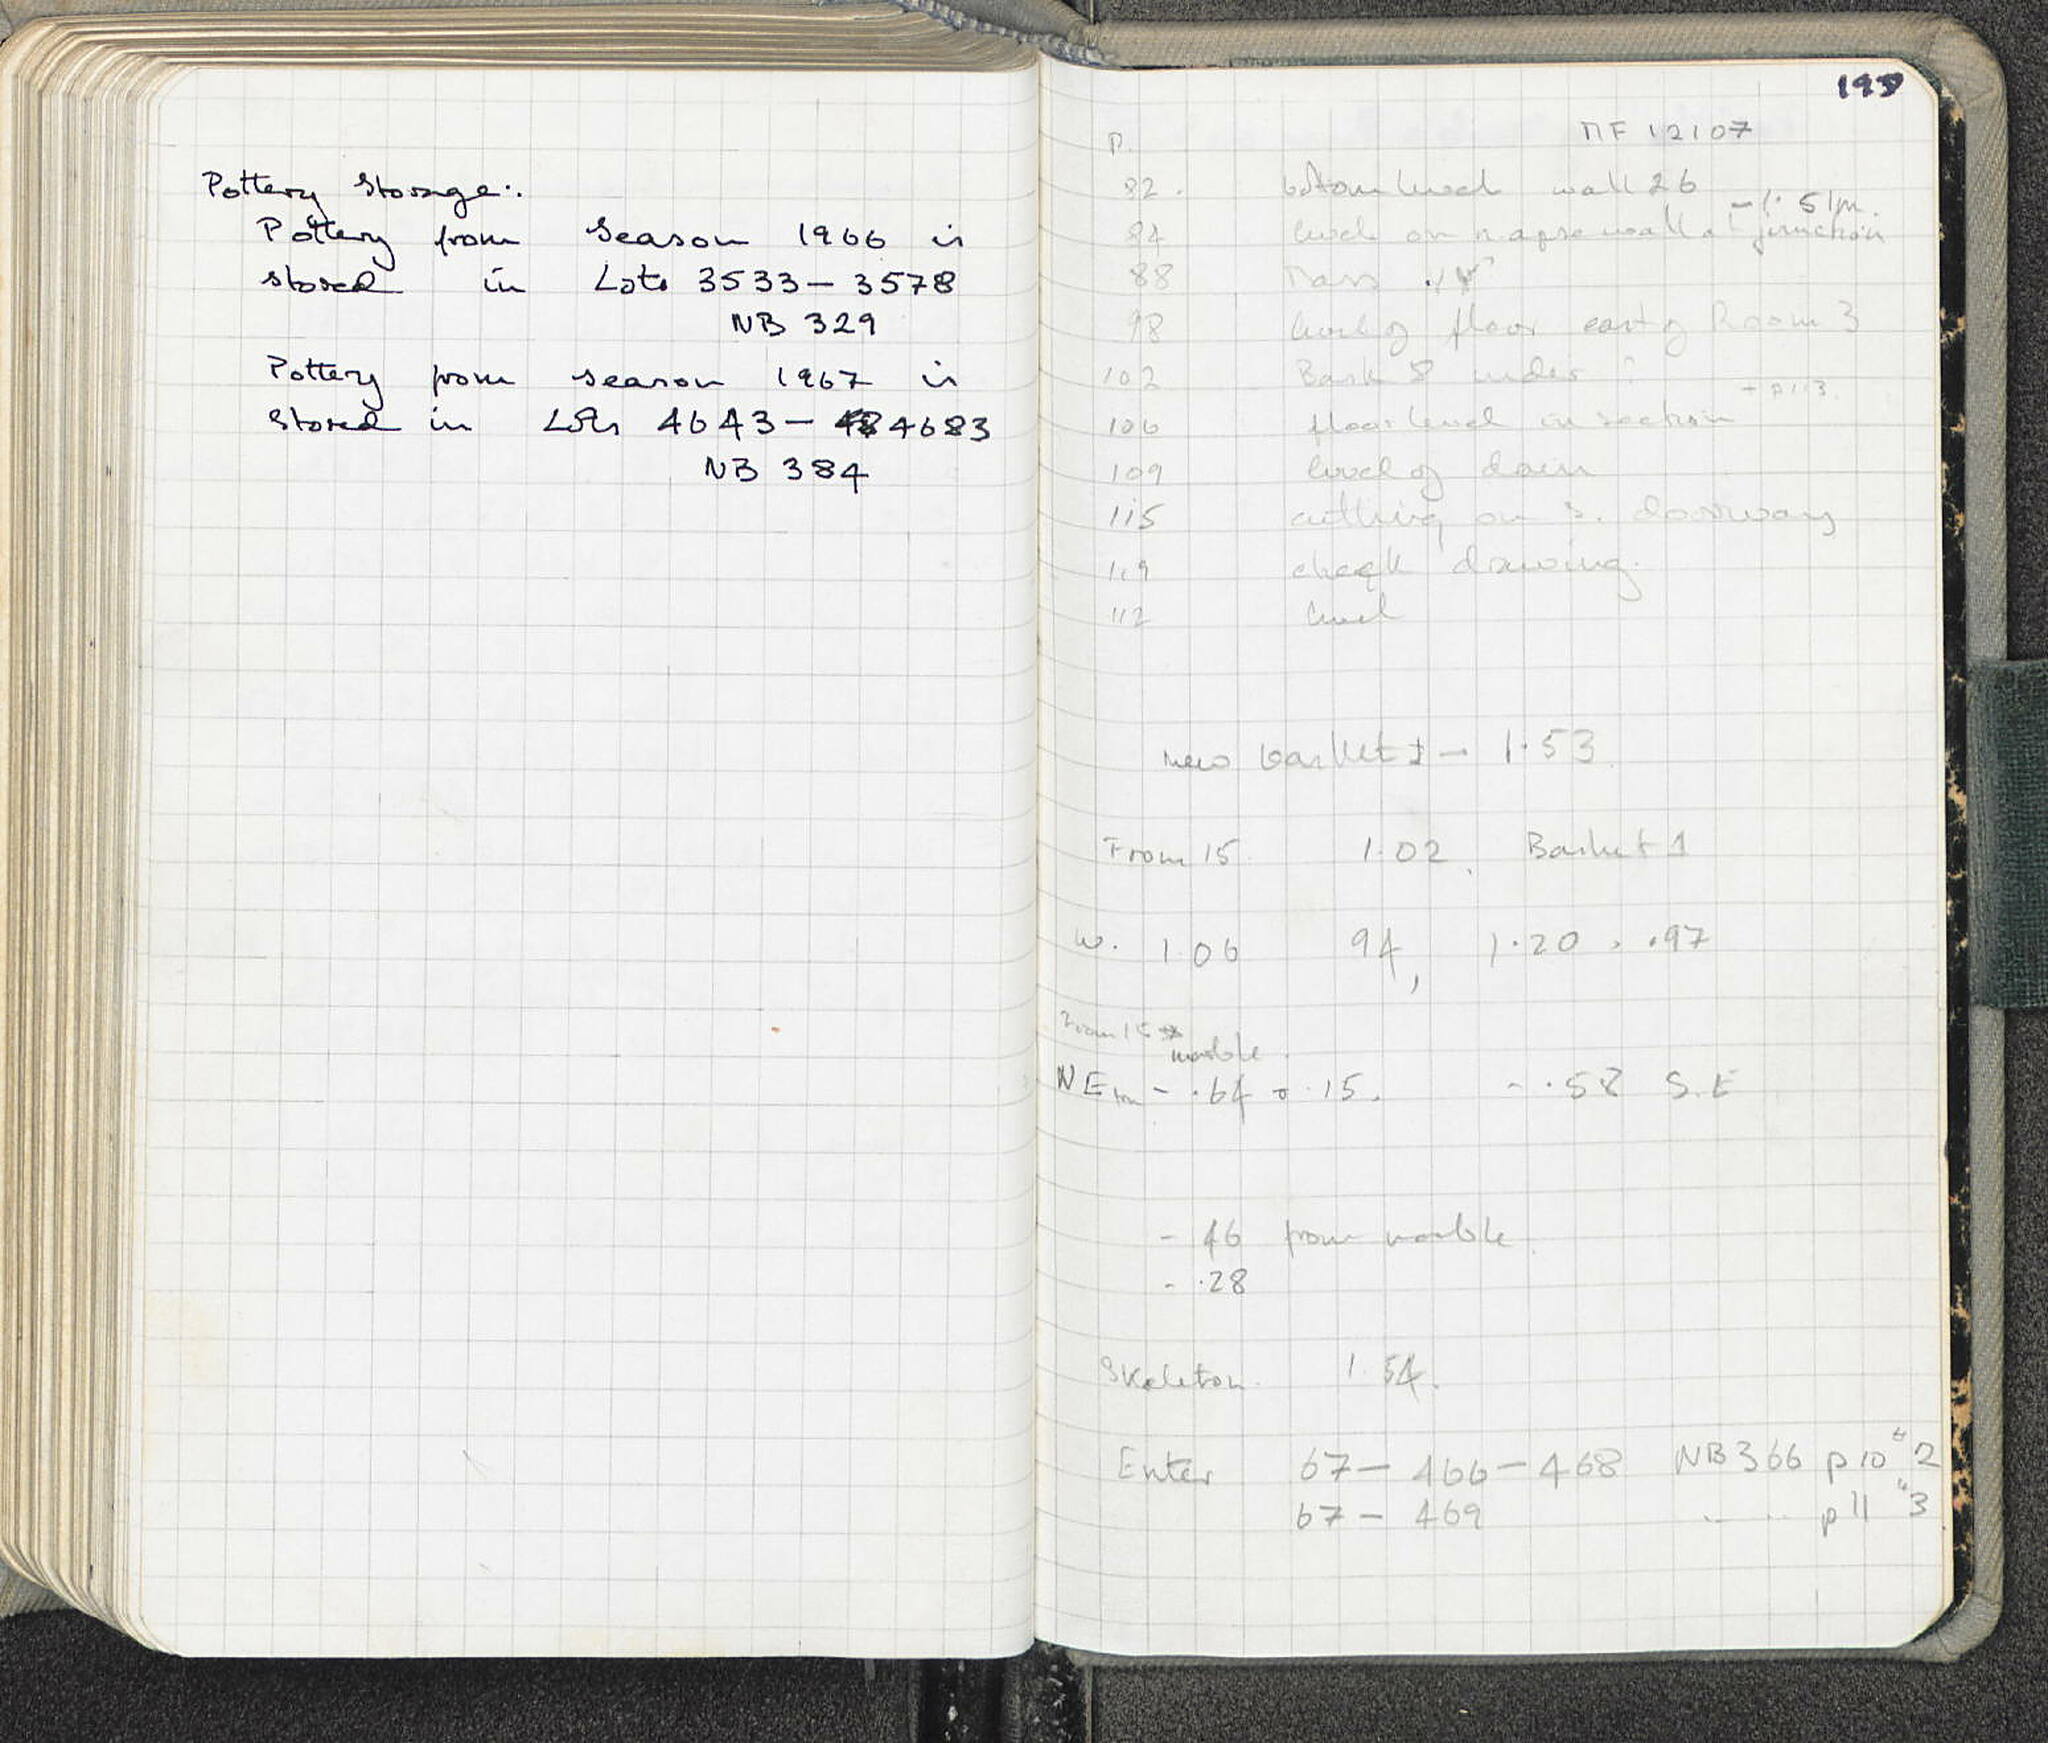 Pottery Storage:.
Pottery from Season 1966 is
stored in Lots 3533 - 3578
NB 329
Pottery from season 1967 is
stored in Lots 4643 - 4683
NB 384
MF 12107
P.
82. bottom level wall 26
- 1.51m.
84 level on n apse wall junction
88
98 level of floor east of Room 3
102 Bask 8 under ?
- p113.
106 floor level in section
109 level of drain
115 cutting on s. doorway
119 check drawing.
112 level
new basket 1 - 1.53
From 15 1.02. Basket 1
W. 1.06 94, 1.20, .97
From 15
marble
NE - .64 .15. - .58 S.E
- 46 from marble.
- .28
Skeleton. 1.54.
Enter 67 - 466 - 468 NB 366 p 10 " 2
67 - 469 p 11 " 3